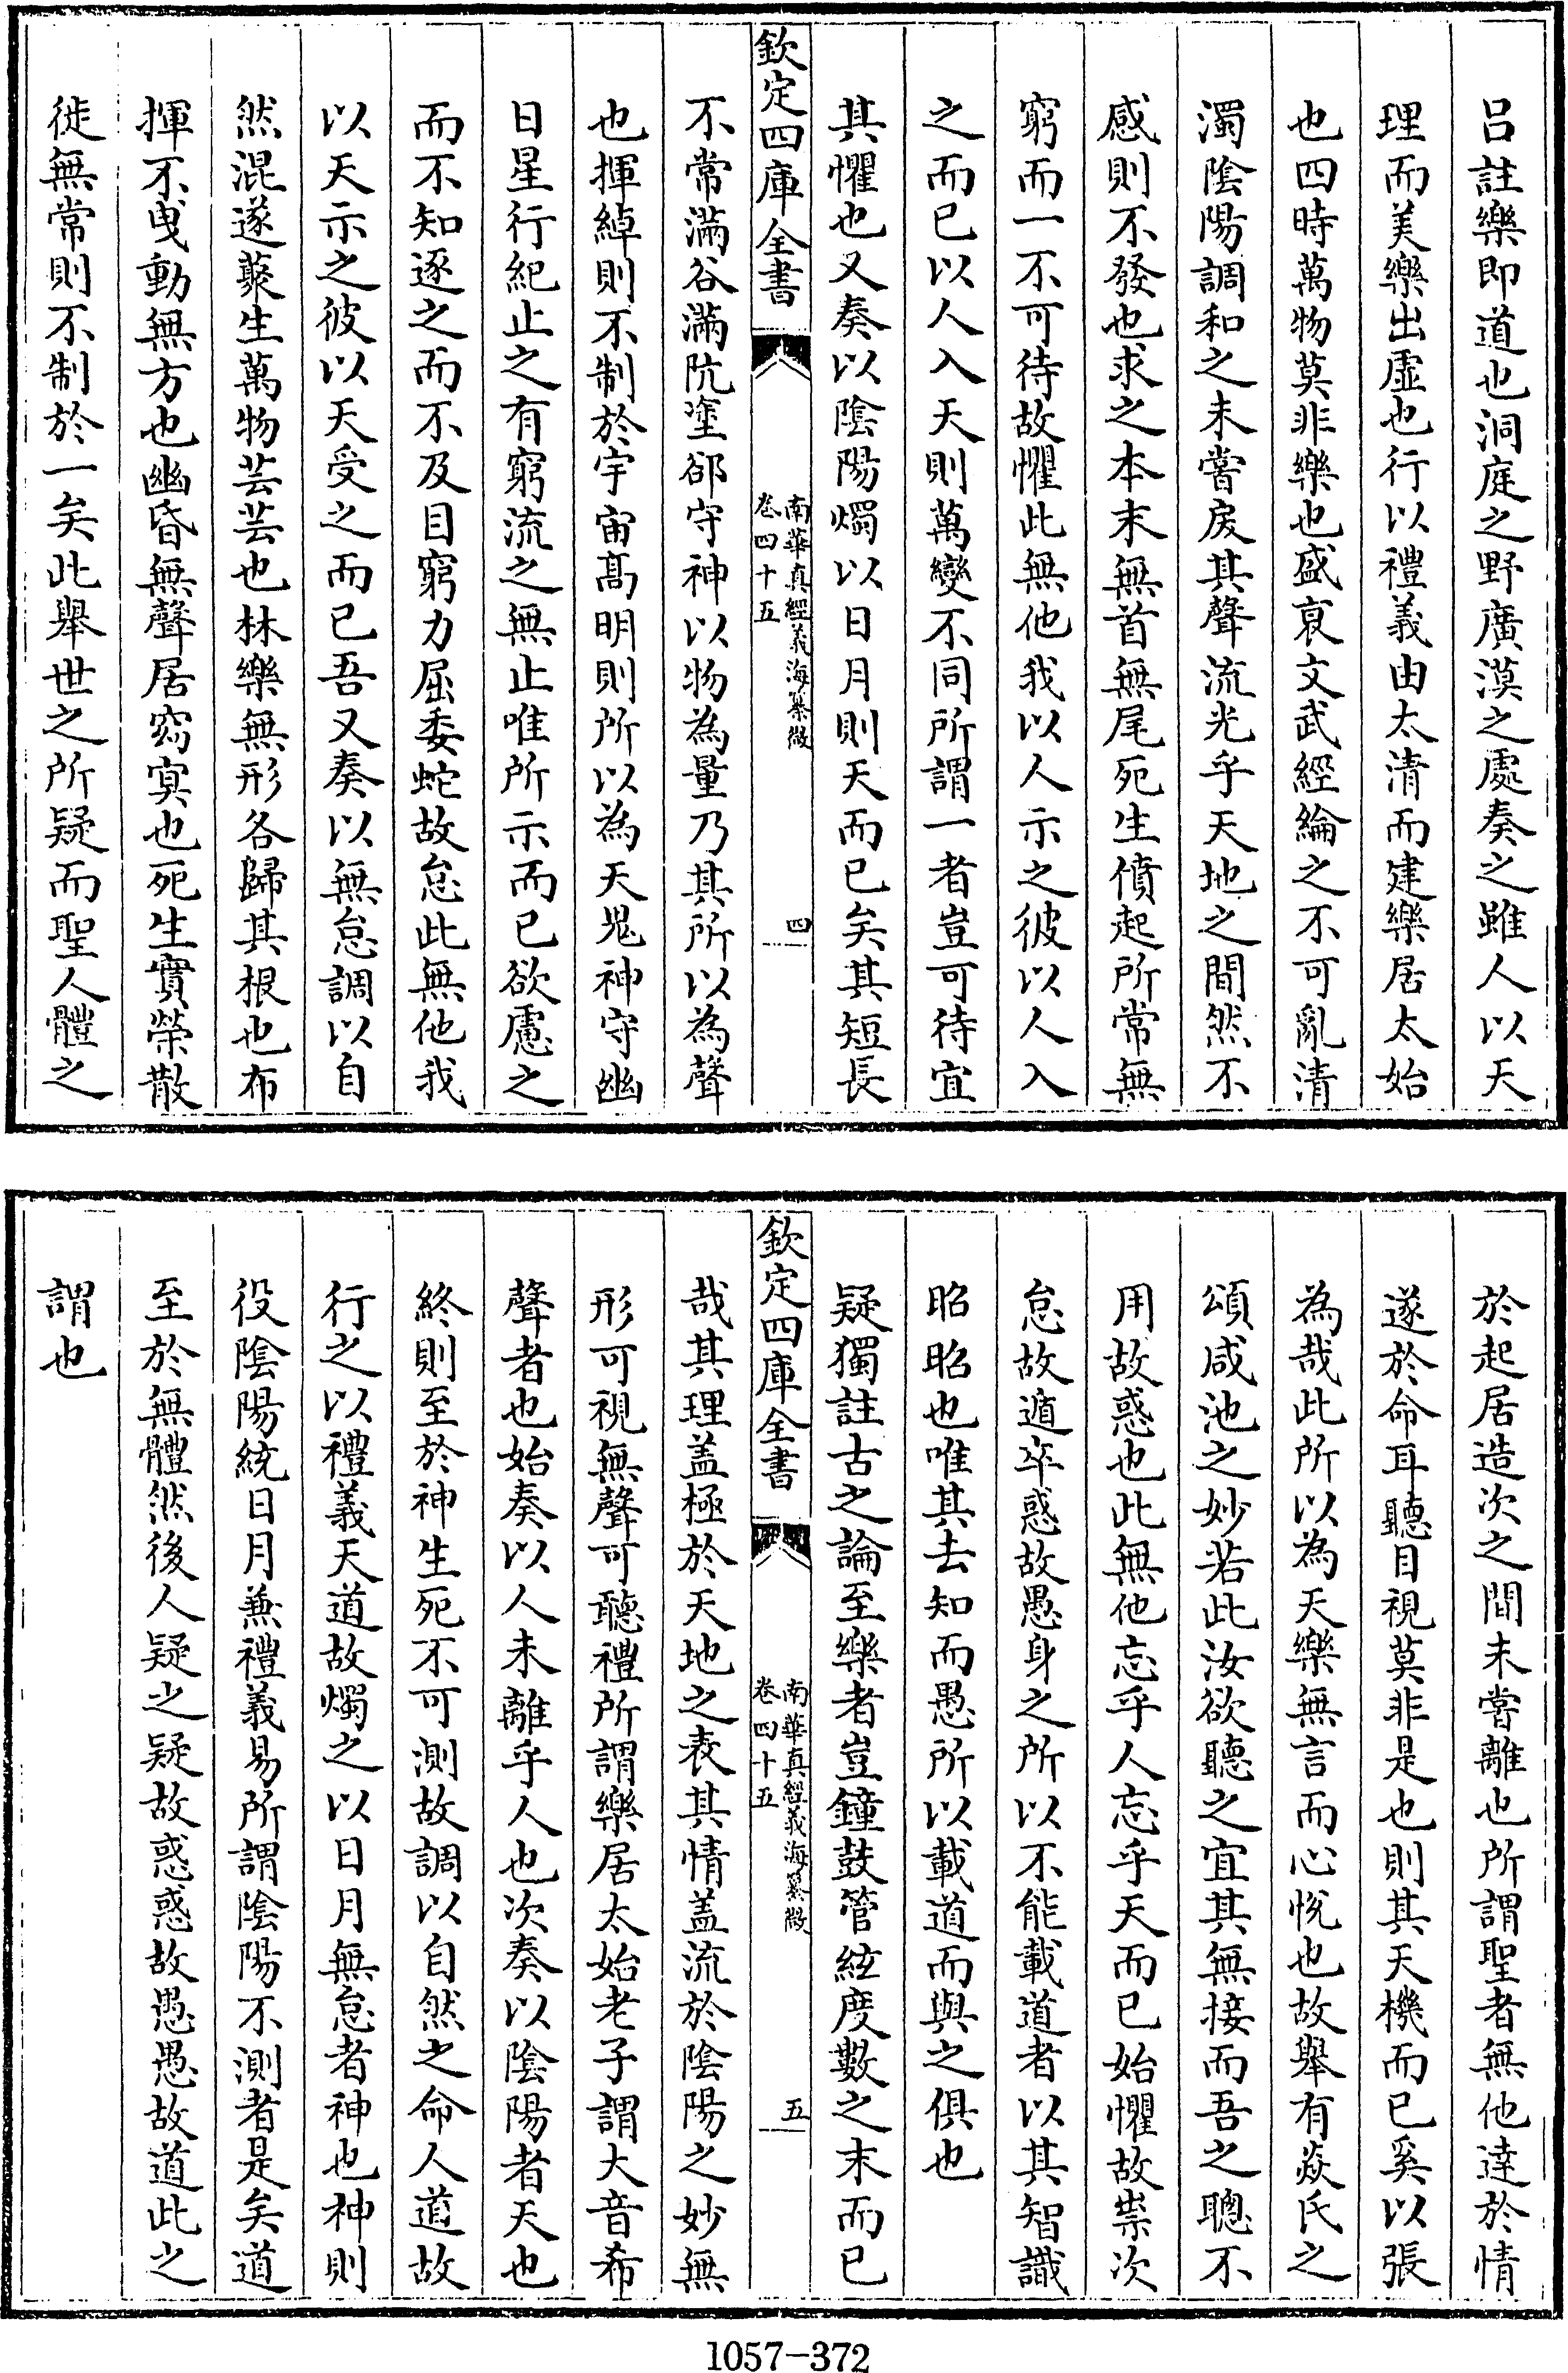 吕註樂即道也洞庭之野廣漠之處奏之雖人以天
理而美樂出虛也行以禮義由太清而建樂居太始
也四時萬物莫非樂也盛衰文武經綸之不可亂清
濁陰陽調和之未嘗戾其聲流光乎天地之間然不
感則不發也求之本末無首無尾死生僨起所常無
窮而一不可待故懼此無他我以人示之彼以人入
之而已以人入天則萬變不同所謂一者豈可待宜
其懼也又奏以陰陽燭以日月則天而已矣其短長
欽定四庫全書
南華真經義海纂微
卷四十五
四
不常滿谷滿阬塗郤守神以物為量乃其所以為聲
也揮綽則不制於宇宙髙明則所以為天鬼神守幽
日星行紀止之有窮流之無止唯所示而已欲慮之
而不知逐之而不及目窮力屈委蛇故怠此無他我
以天示之彼以天受之而已吾又奏以無怠調以自
然混遂藂生萬物芸芸也林樂無形各歸其根也布
揮不曵動無方也幽昏無聲居窈冥也死生實榮散
徙無常則不制於一矣此舉世之所疑而聖人體之
於起居造次之間未嘗離也所謂聖者無他達於情
遂於命耳聽目視莫非是也則其天機而已奚以張
為哉此所以為天樂無言而心悅也故舉有焱氏之
頌咸池之妙若此汝欲聽之宜其無接而吾之聰不
用故惑也此無他忘乎人忘乎天而已始懼故祟次
怠故遁卒惑故愚身之所以不能載道者以其智識
昭昭也唯其去知而愚所以載道而與之俱也
疑獨註古之論至樂者豈鐘鼓管絃度數之末而已
欽定四庫全書
南華真經義海纂微
卷四十五
五
哉其理盖極於天地之表其情盖流於陰陽之妙無
形可視無聲可聽禮所謂樂居太始老子謂大音希
聲者也始奏以人未離乎人也次奏以陰陽者天也
終則至於神生死不可測故調以自然之命人道故
行之以禮義天道故燭之以日月無怠者神也神則
役陰陽統日月兼禮義易所謂陰陽不測者是矣道
至於無體然後人疑之疑故惑惑故愚愚故道此之
謂也
1057-372